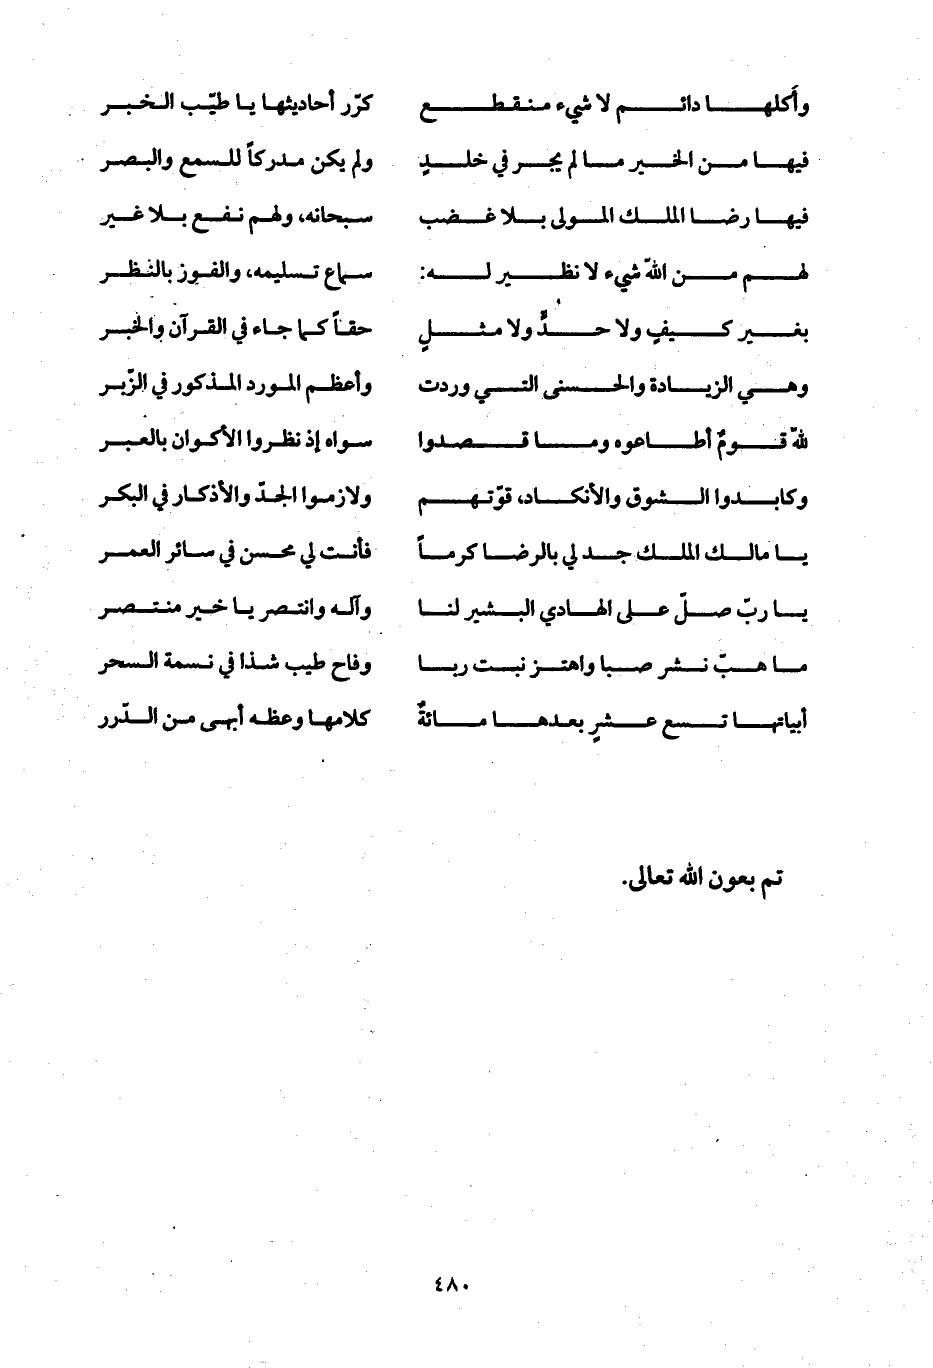 وأَكلها دائم لا شيء منقطع كرّر أحاديثها يا طيّب الخبر
فيها من الخير ما لم يجر في خلدٍ ولم يكن مدركاً للسمع والبصر
فيها رضا الملك المولى بلا غضب سبحانه، ولهم نفع بلا غير
لهم من الله شيء لا نظير له: سماع تسليمه، والفوز بالنظر
بغير كيفٍ ولا حدٍّ ولا مثلٍ حقاً كما جاء في القرآن والخبر
وهي الزيادة والحسنى التي وردت وأعظم المورد المذكور في الزّبر
لله قومٌ أطاعوه وما قصدوا سواه إذ نظروا الأكوان بالعبر
وكابدوا الشوق والأنكاد، قوّتهم ولازموا الجدّ والأذكار في البكر
يا مالك الملك جد لي بالرضا كرماً فأنت لي محسن في سائر العمر
يا ربّ صلّ على الهادي البشير لنا وآله وانتصر يا خير منتصر
ما هبّ نشر صبا واهتز نبت ربا وفاح طيب شذا في نسمة السحر
أبياتها تسع عشرٍ بعدها مائةٌ كلامها وعظه أبهى من الدّرر
تم بعون الله تعالى.
٤٨٠